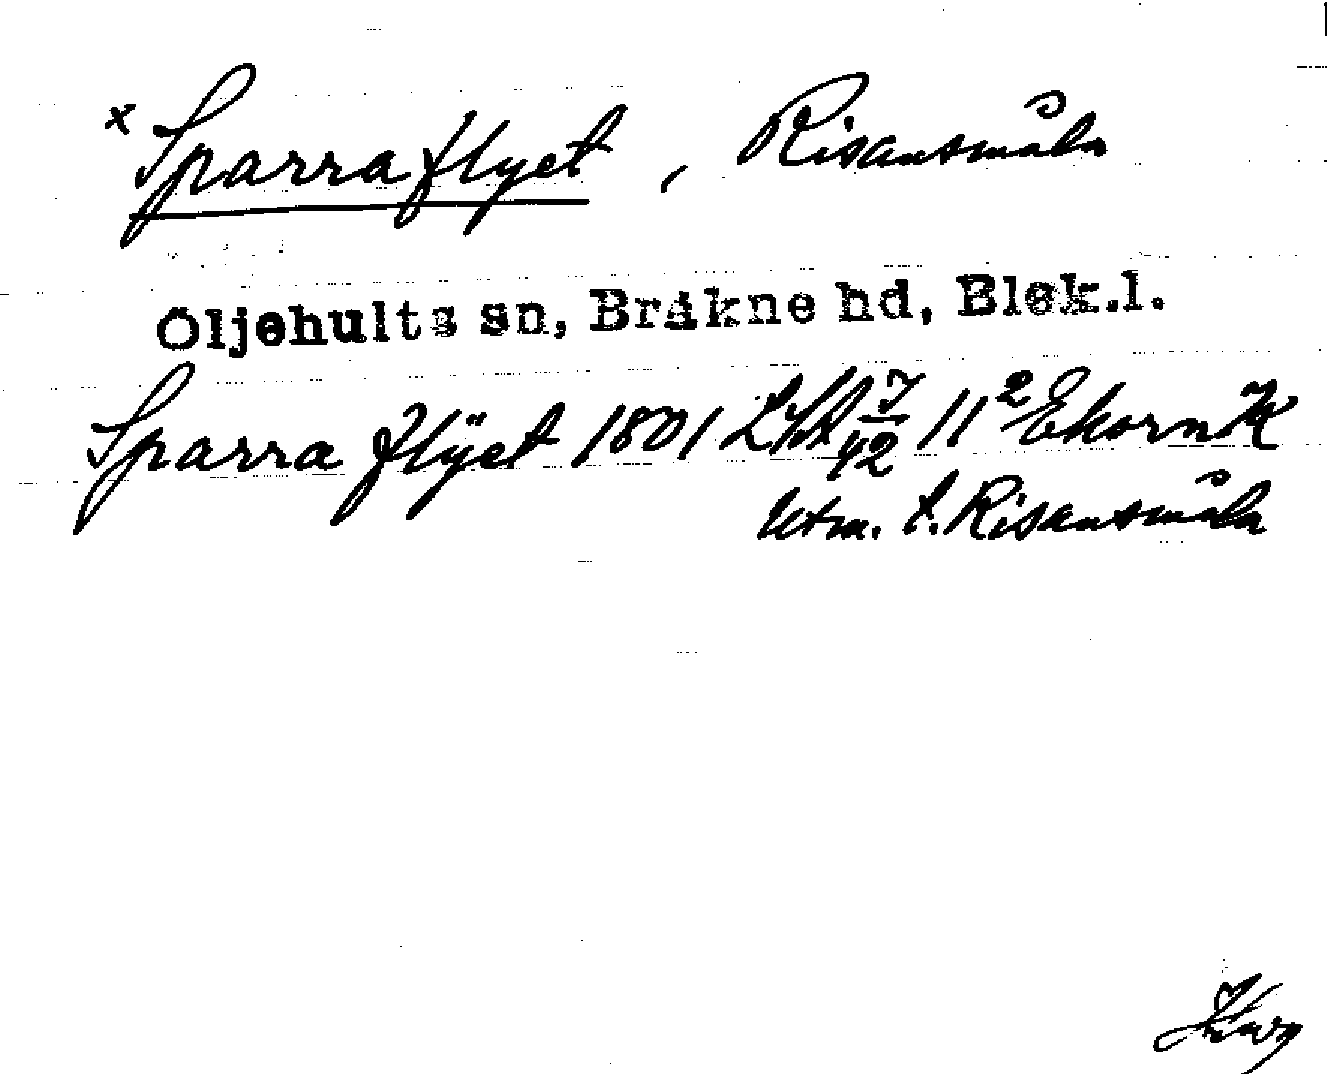 x Sparraflyet, Risansmåla
Öljehults sn, Bräkne hd, Blek.l.
Sparra flÿet 1801 LSA J/42 11² Ekorn K
Utm. t. Risansmåla